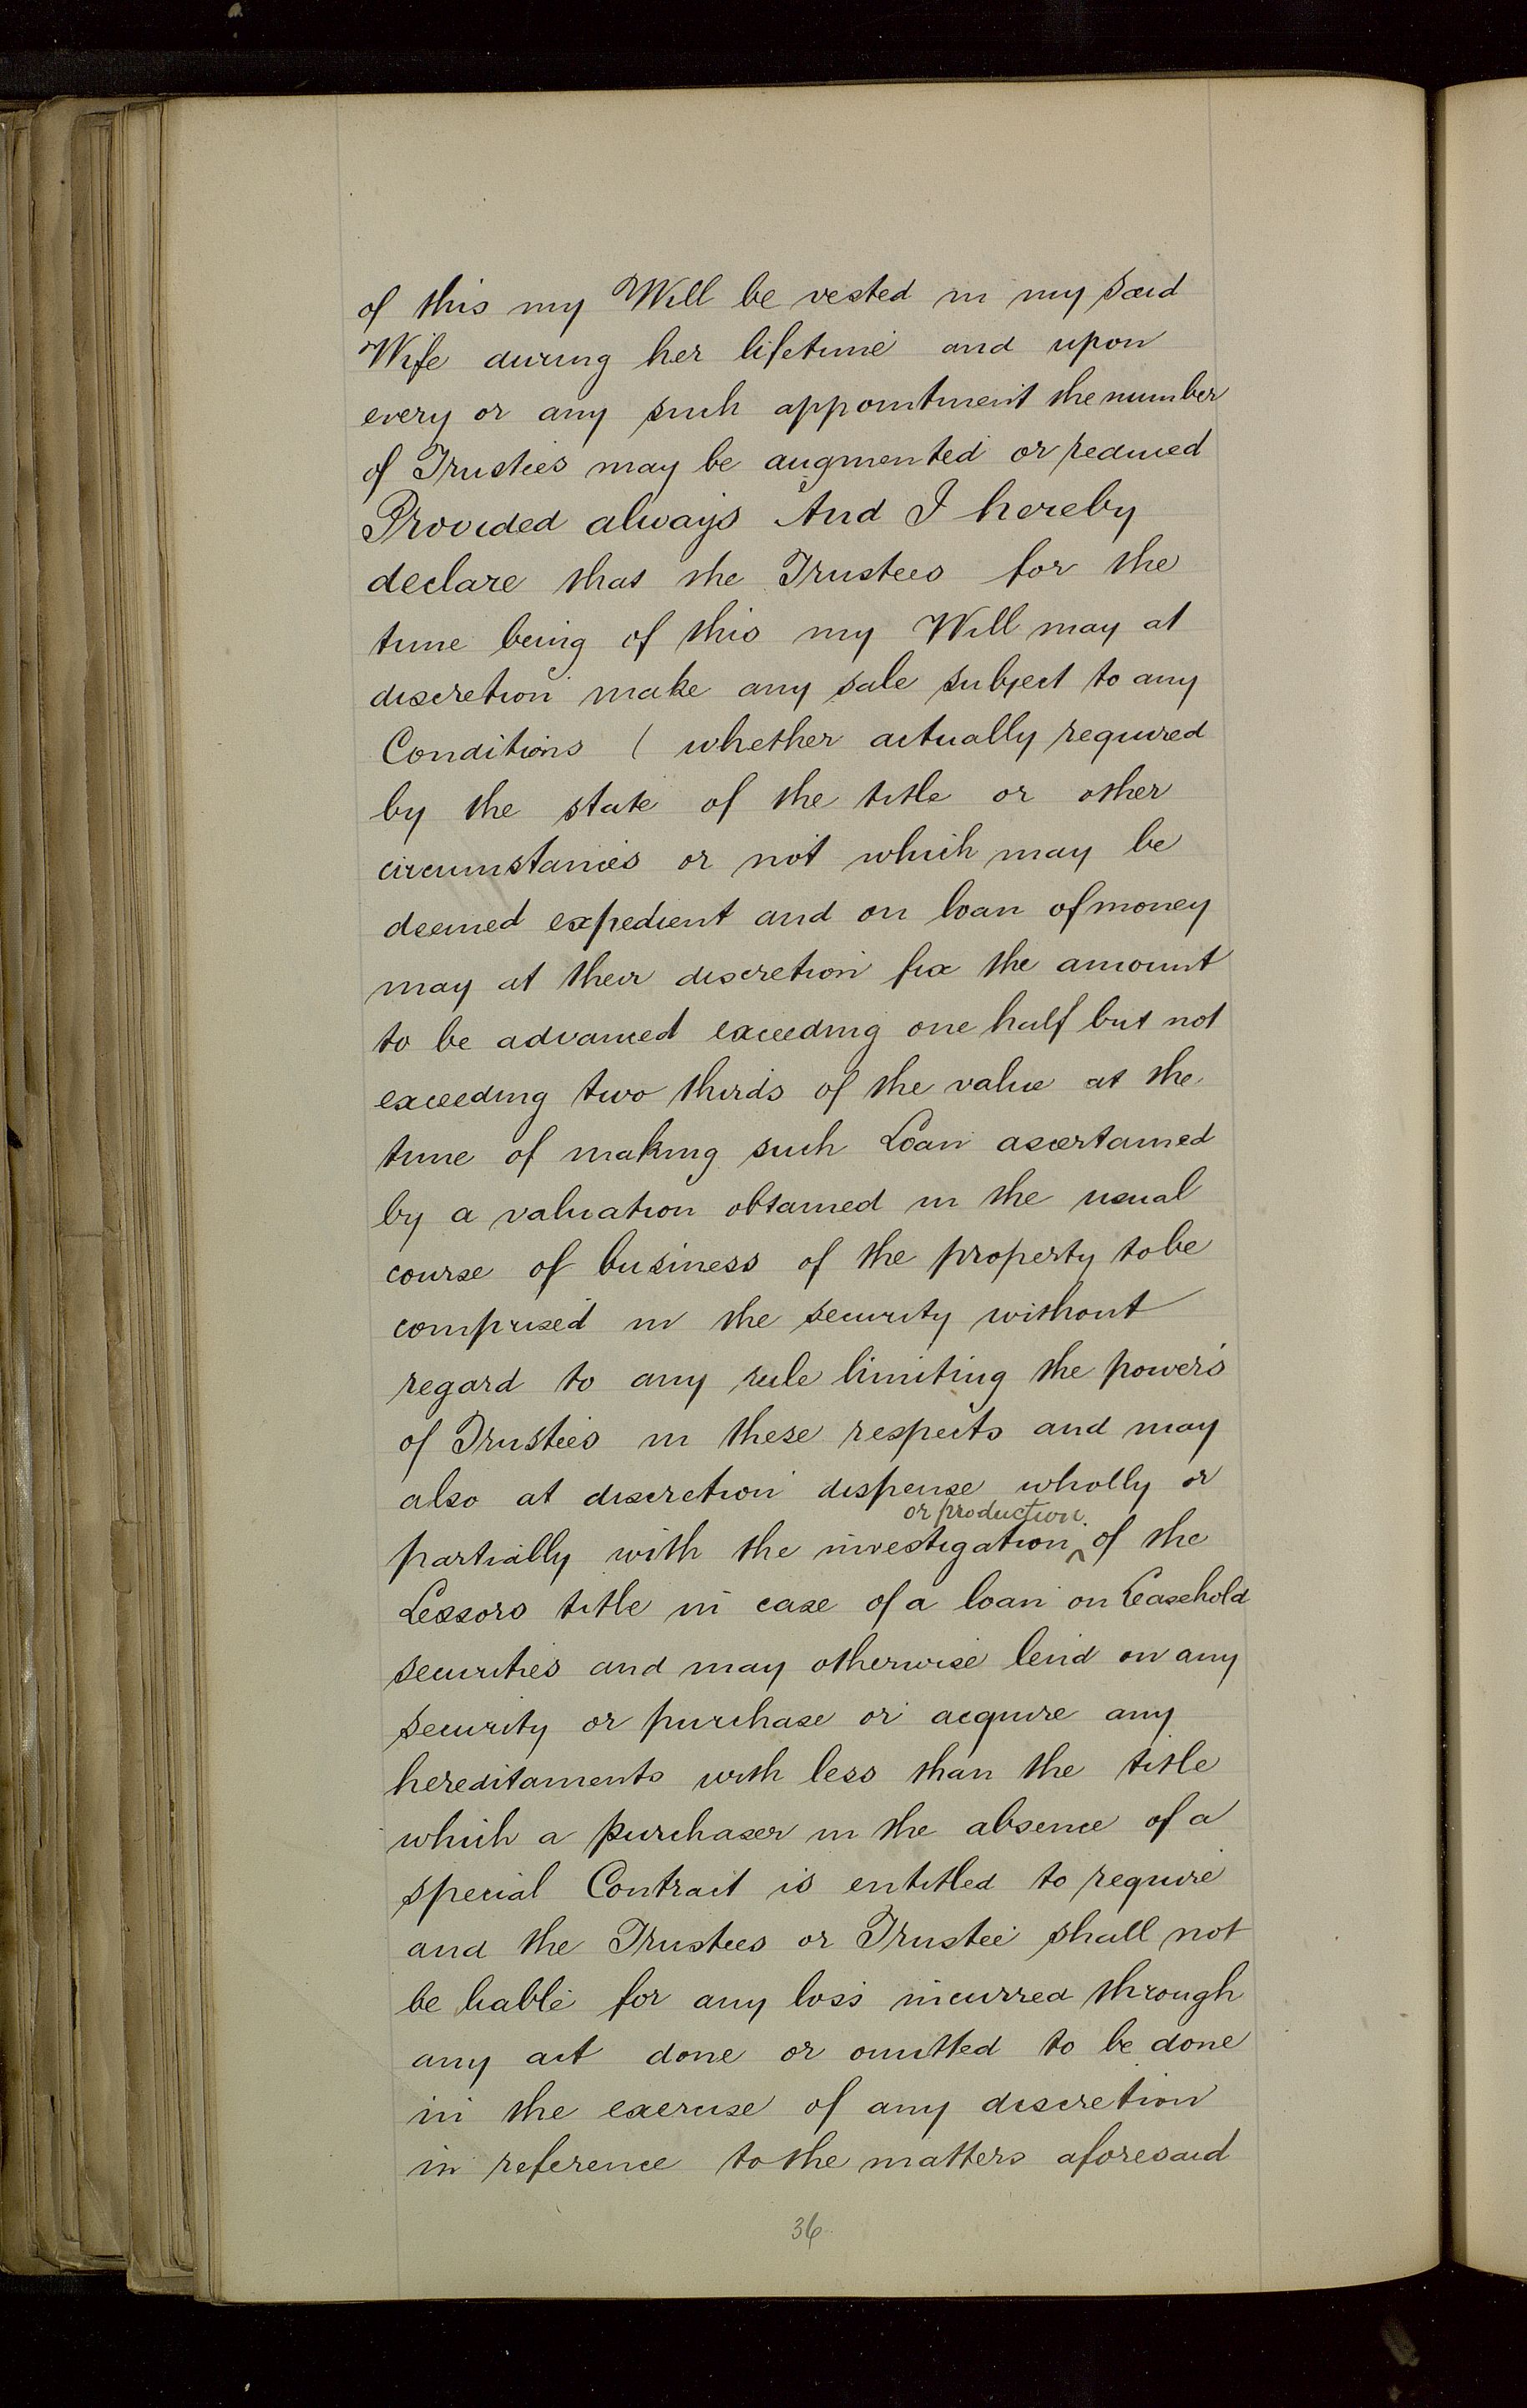 of this my Will be vested in my said
Wife during her lifetime and upon
every or any such appointment the number
of Trustees may be augmented or reduced
Provided always And I hereby
declare that the Trustees for the
time being of this my Will may at
discretion make any sale subject to any
Conditions ( whether actually required
by the state of the title or other
circumstances or not which may be
deemed expedient and on loan of money
may at their discretion fix the amount
to be advanced exceeding one half but not
exceeding two thirds of the value at the
time of making such Loan ascertained
by a valuation obtained in the usual
course of business of the property to be
comprised in the security without
regard to any rule limiting the powers
of Trustees in these respects and may
also at discretion dispense wholly or
or production
partially with the investigation ^ of the
Lessors title in case of a loan on Leasehold
securities and may otherwise lend on any
security or purchase or acquire any
hereditaments with less than the title
which a purchaser in the absence of a
special Contract is entitled to require
and the Trustees or Trustee shall not
be liable for any loss incurred through
any act done or omitted to be done
in the exercise of any discretion
in reference to the matters aforesaid
36